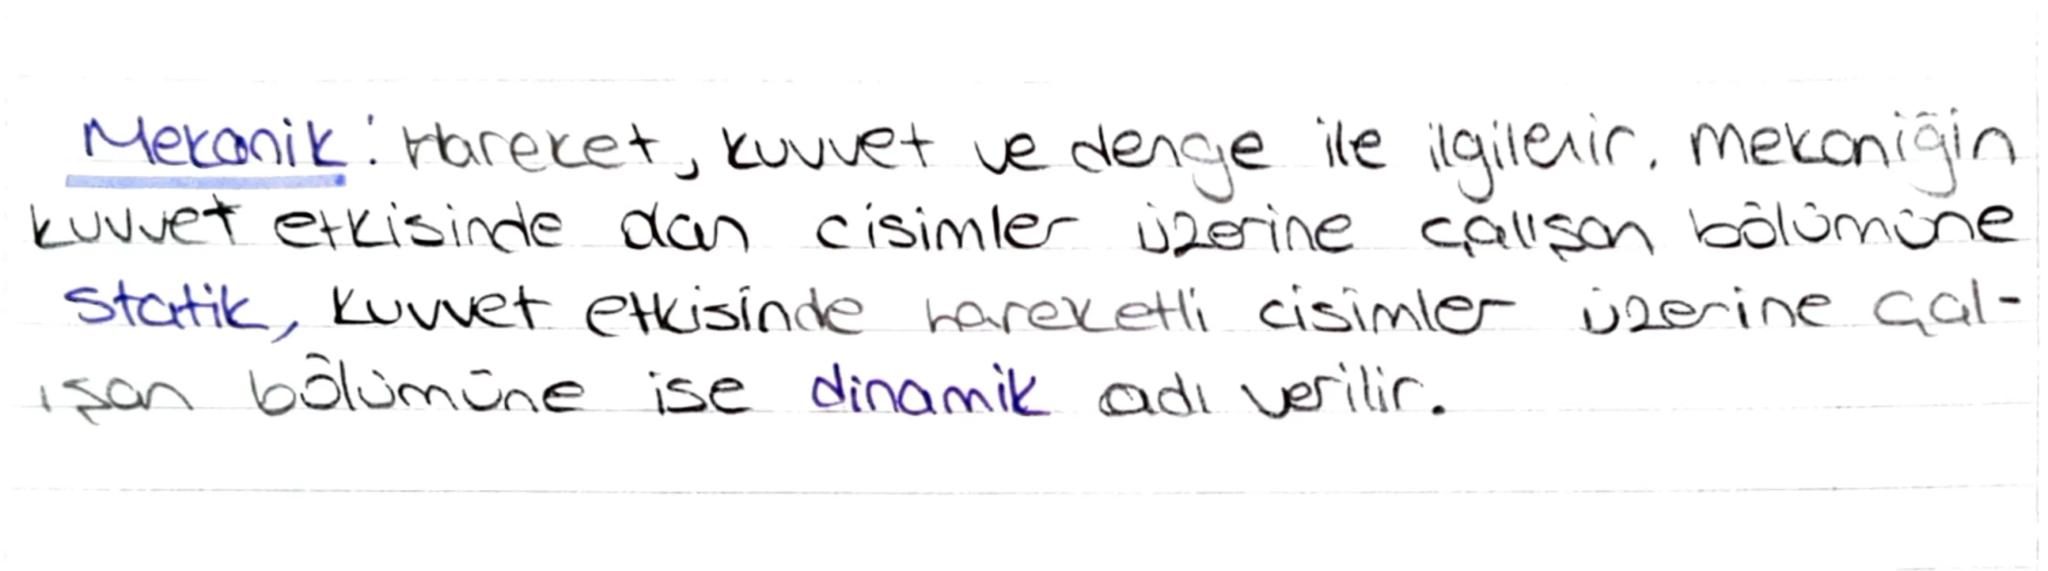 Mekanik: Hareket, kuvvet ve denge ile ilgilenir. Mekaniğin
kuvvet etkisinde olan cisimler üzerine çalışan bölümüne
statik, kuvvet etkisinde hareketli cisimler üzerine çal-
ışan bölümüne ise dinamik adı verilir.